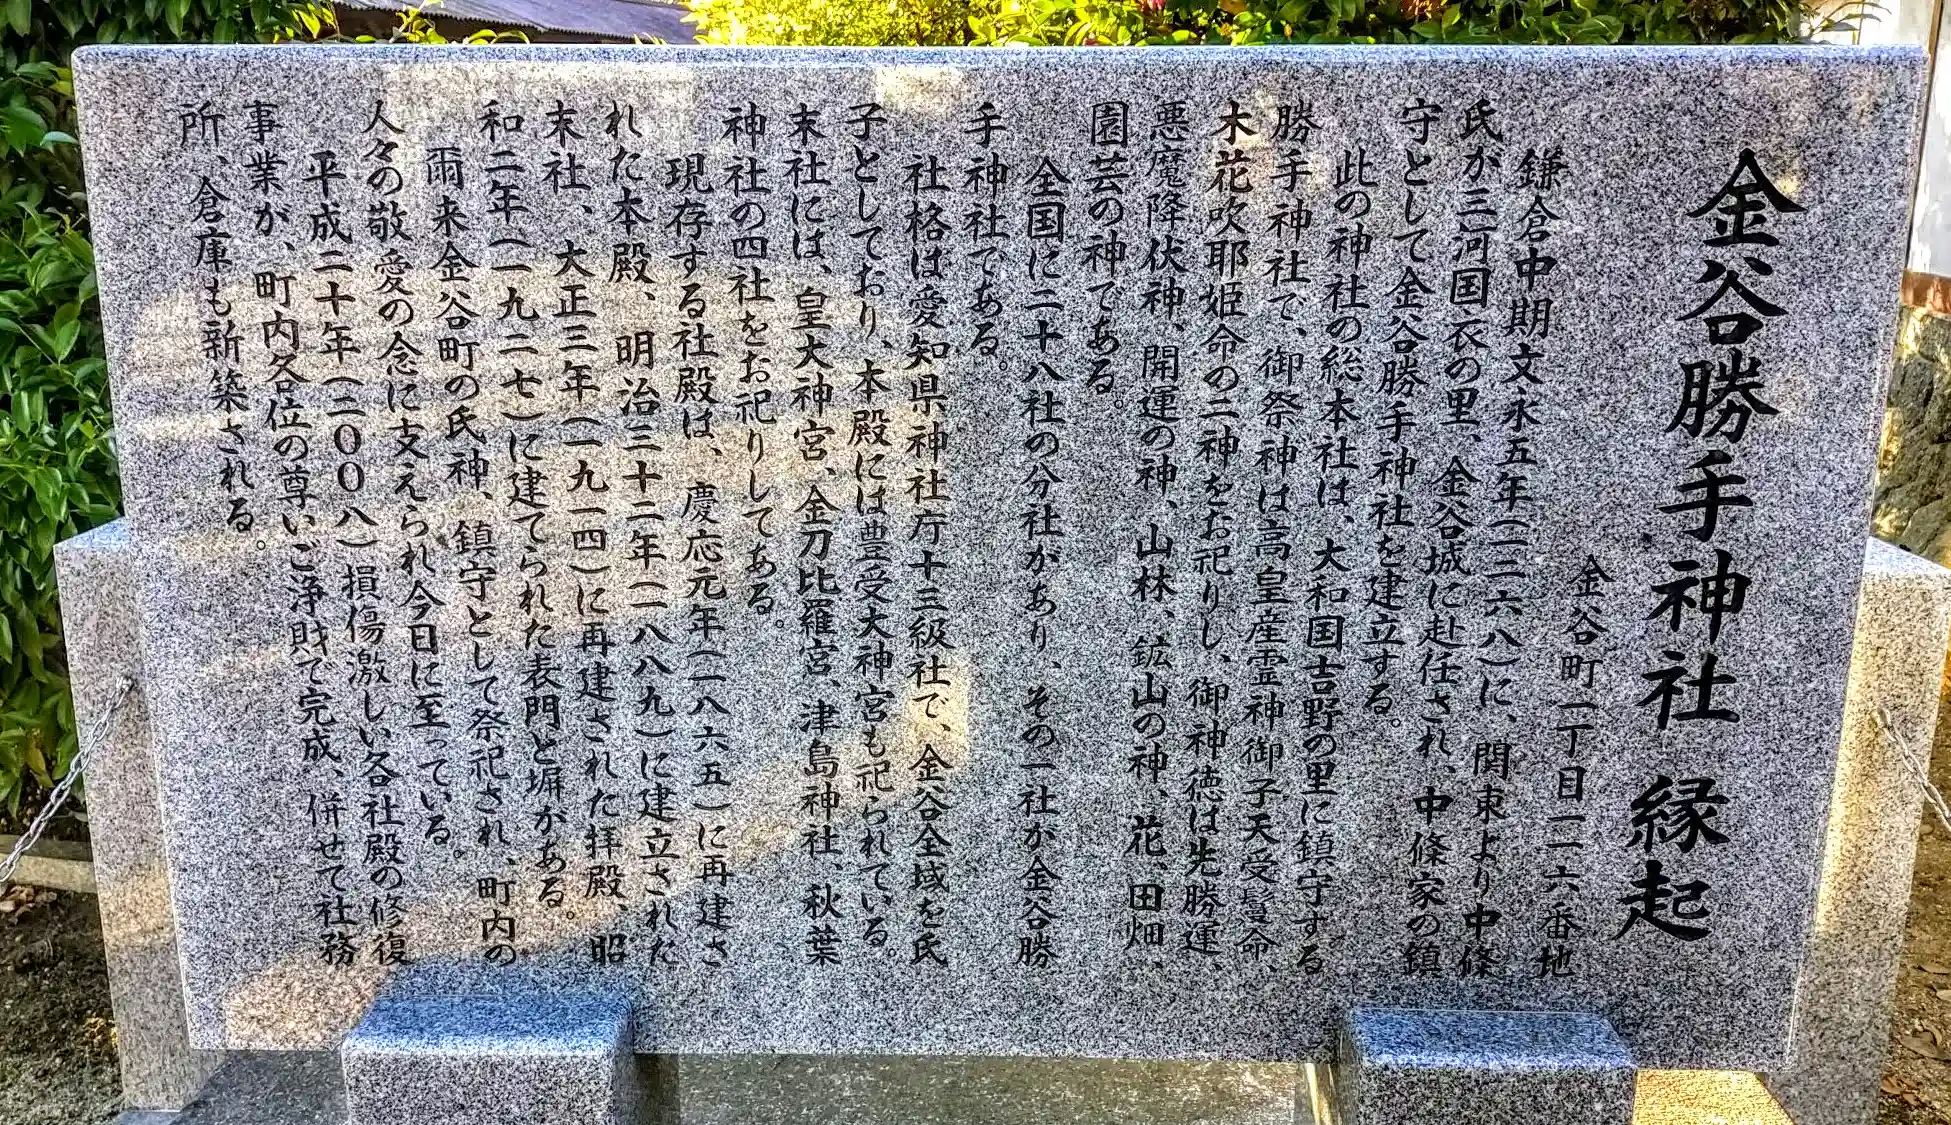 金谷勝手神社 縁起
金谷町一丁目一二六番地
鎌倉中期文永五年(一二六八)に、関東より中條
氏が三河国衣の里、金谷城に赴任され、中條家の鎮
守として金谷勝手神社を建立する。
此の神社の総本社は、大和国吉野の里に鎮守する
勝手神社で、御祭神は高皇産霊神御子天受鬘命、
木花吹耶姫命の二神をお祀りし、御神徳は先勝運、
悪魔降伏神、開運の神、山林、鉱山の神、花、田畑、
園芸の神である。
全国に二十八社の分社があり、その一社が金谷勝
手神社である。
社格は愛知県神社庁十三級社で、金谷全域を氏
子としており、本殿には豊受大神宮も祀られている。
末社には、皇大神宮、金刀比羅宮、津島神社、秋葉
神社の四社をお祀りしてある。
現存する社殿は、慶応元年(一八六五)に再建さ
れた本殿、明治三十二年(一八八九)に建立された
末社、大正三年(一九一四)に再建された拝殿、昭
和二年(一九二七)に建てられた表門と塀がある。
爾来金谷町の氏神、鎮守として祭祀され、町内の
人々の敬愛の念に支えられ今日に至っている。
平成二十年(二〇〇八)損傷激しい各社殿の修復
事業が、町内各位の尊いご浄財で完成、併せて社務
所、倉庫も新築される。